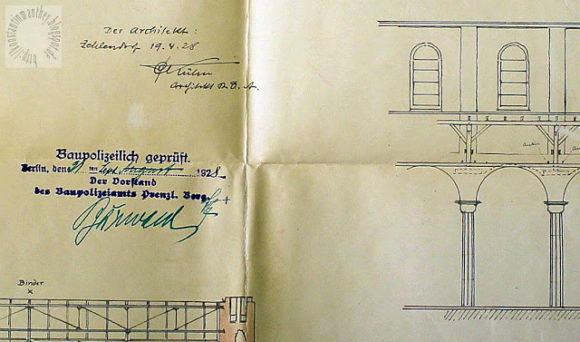 Der Architekt:
Zehlendorf 19.4.28
Architekt B.D.A.
Baupolizeilich geprüft.
Berlin, den 31 August 1928.
Der Vorstand
des Baupolizeiamts Prenzl. Berg.
Binder
x